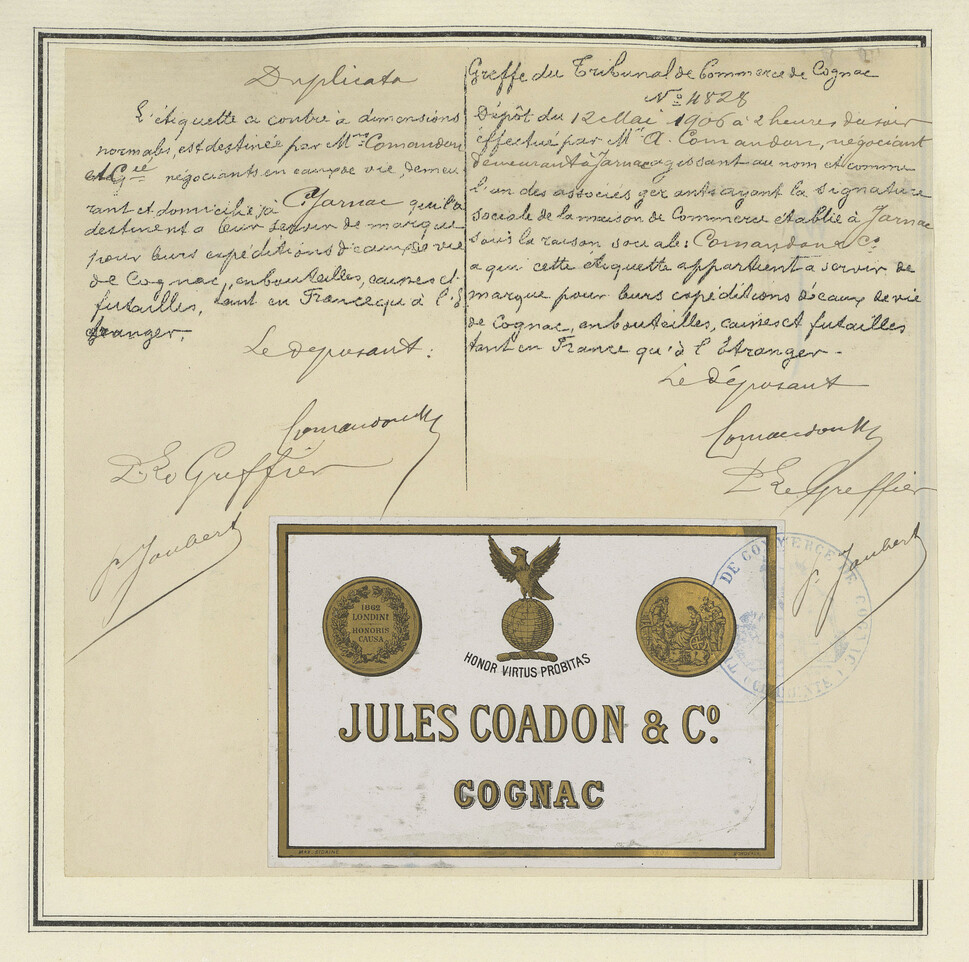 Duplicata
L'étiquette ci contre à dimensions
normales, est destinée par Mrs Comandon
et Cie négociants en eaux de vie, demeu
rant et domiciliés à Jarnac qu'ils
destinent à leur servir de marque
pour leurs expéditions d'eaux de vie
de Cognac, en bouteilles, caisses et
futailles, tant en France qu'à l'É
tranger.
Le déposant:
Comandon
P. Le Greffier
P. Joubert
Greffe du Tribunal de Commerce de Cognac
No 4828
Dépôt du 12 Mai 1906 à 2 heures du soir
effectué par Mr A. Comandon, négociant
demeurant à Jarnac agissant au nom et comme
l'un des associés gérants ayant la signature
sociale de la maison de Commerce établie à Jarnac
sous la raison sociale: Comandon & Co
a qui cette étiquette appartient a servir de
marque pour leurs expéditions d'eaux de vie
de Cognac, en bouteilles, caisses et futailles
tant en France qu'à l'Étranger.
Le déposant
Comandon
P. Le Greffier
P. Joubert
DE COMMERCE DE COGNAC
1862
LONDINI
HONORIS
CAUSA
HONOR VIRTUS PROBITAS
JULES COADON & Co.
COGNAC